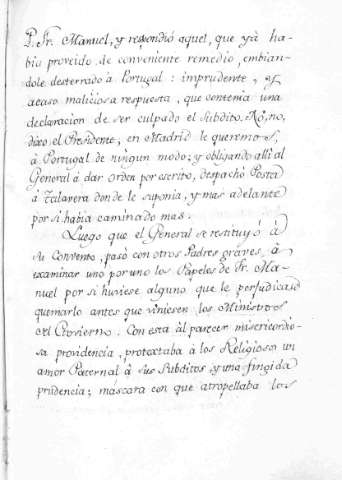 P. Fr. Manuel, y respondió aquel, que yà ha-
bia proveido de conveniente remedio, embian-
dole desterrado à Portugal: imprudente, y
acaso maliciosa respuesta, que contenia una
declaracion de ser culpado el subdito. No, no,
dixo el Presidente, en Madrid le queremos,
à Portugal de ningun modo; y obligando alli al
General à dar orden por escrito, despachò Posta
à Talavera donde le suponia, y mas adelante
por si habia caminado mas.
Luego que el General se restituyó à
su Convento, pasò con otros Padres graves, à
examinar uno por uno los Papeles de Fr. Ma-
nuel por si huviese alguno que le perjudicase
quemarlo antes que viniesen los Ministros
del Govierno. Con esta àl parecer misericordio-
sa providencia, protextaba à los Religiosos un
amor Paternal à sus Subditos y una fingida
prudencia; máscara con que atropellaba los